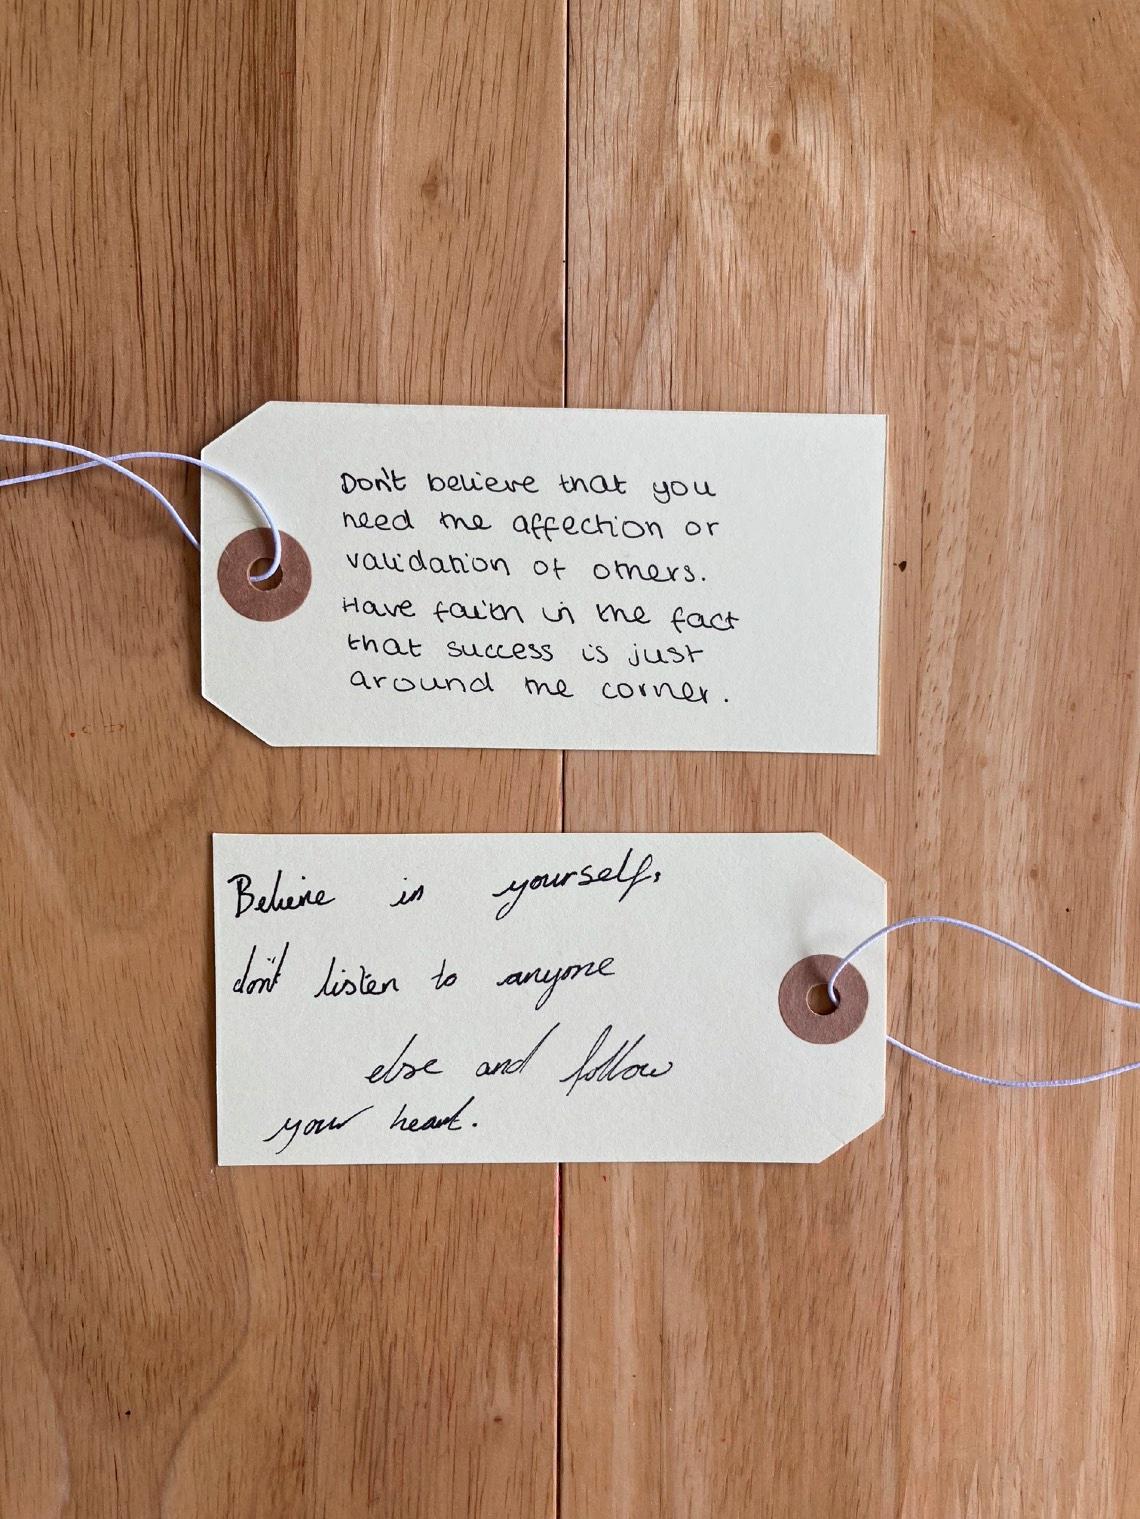 Don't believe that you
need the affection or
validation of others.
Have faith in the fact
that success is just
around the corner.
Believe in yourself,
don't listen to anyone
else and follow
your heart.